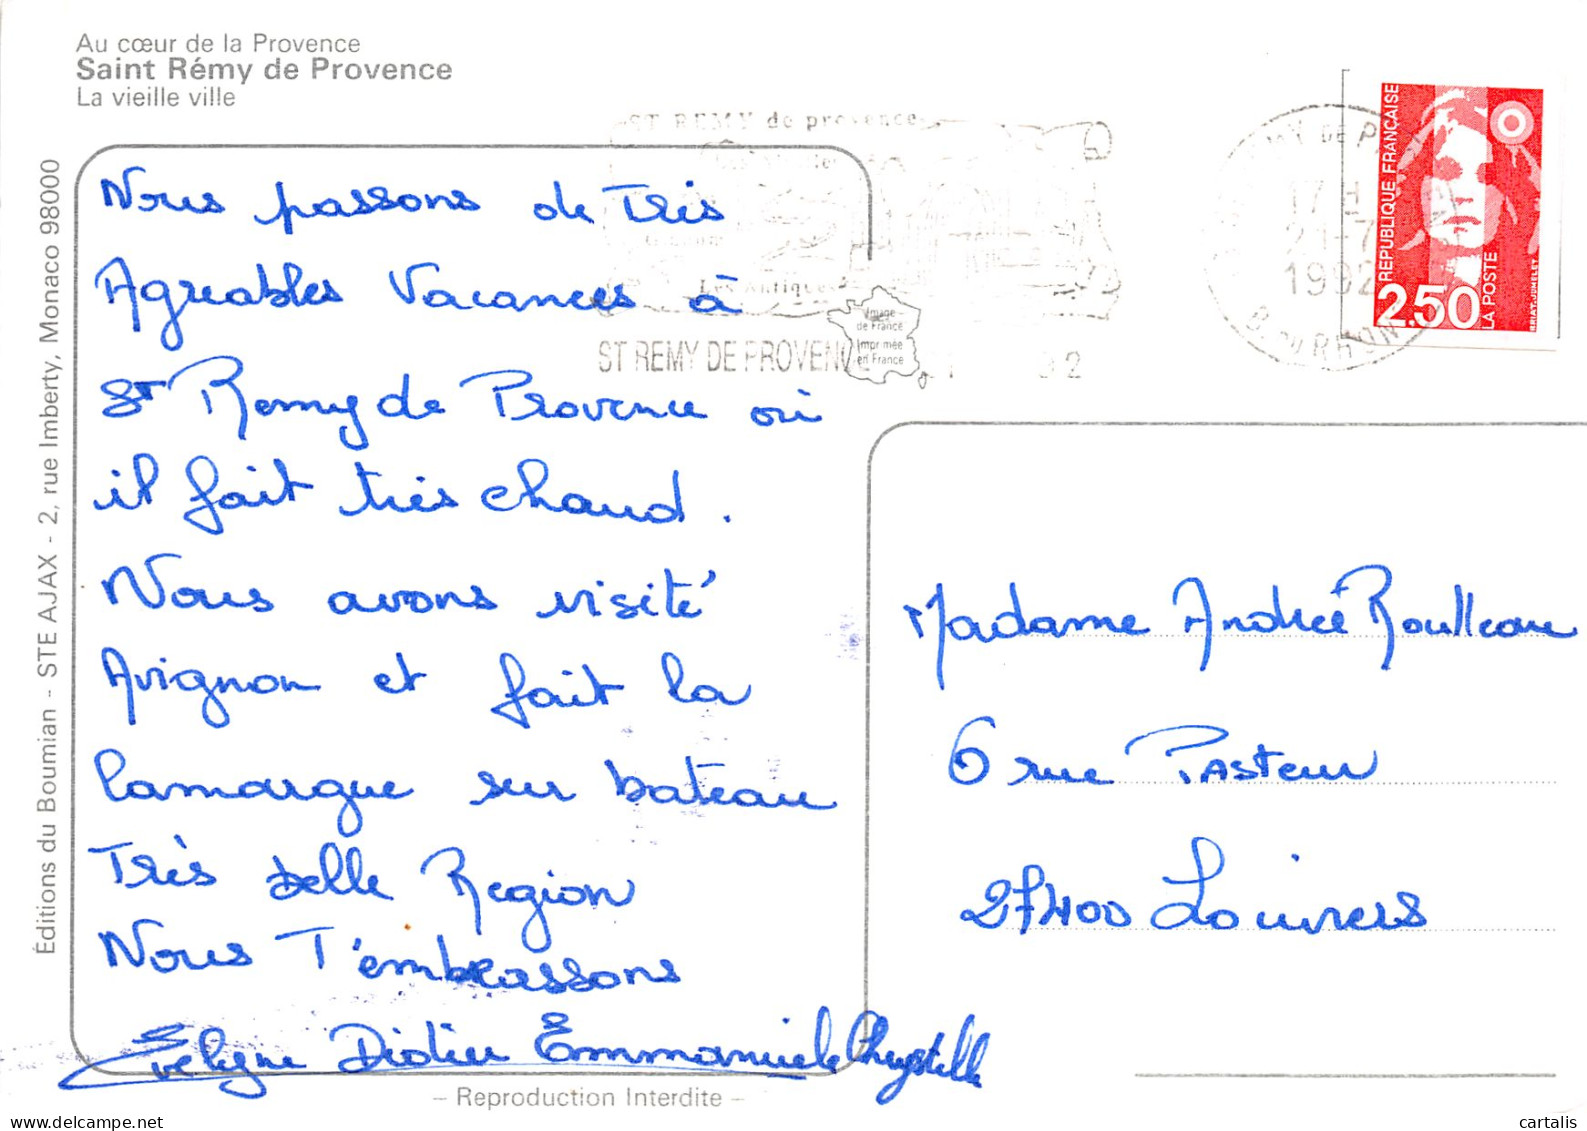 Au cœur de la Provence
Saint Rémy de Provence
La vieille ville
Éditions du Boumian - STE AJAX - 2, rue Imberty, Monaco 98000
Nous passons de Très
Agréables Vacances à
St Remy de Provence où
il fait très chaud.
Nous avons visité
Avignon et fait la
Camargue sur bateau
Très belle Region
Nous T'embrassons
Evelyne Didier Emmanuele Chrystelle
- Reproduction Interdite -
ST REMY de provence
Les Antiques
ST REMY DE PROVENCE
Image
de France
Imprimée
en France
17 H
21-7
1992
B. DU RHONE
REPUBLIQUE FRANÇAISE
2.50
LA POSTE
BRIAT-JUMELET
Madame Andrée Roulleau
6 rue Pasteur
27400 Louviers
cartalis